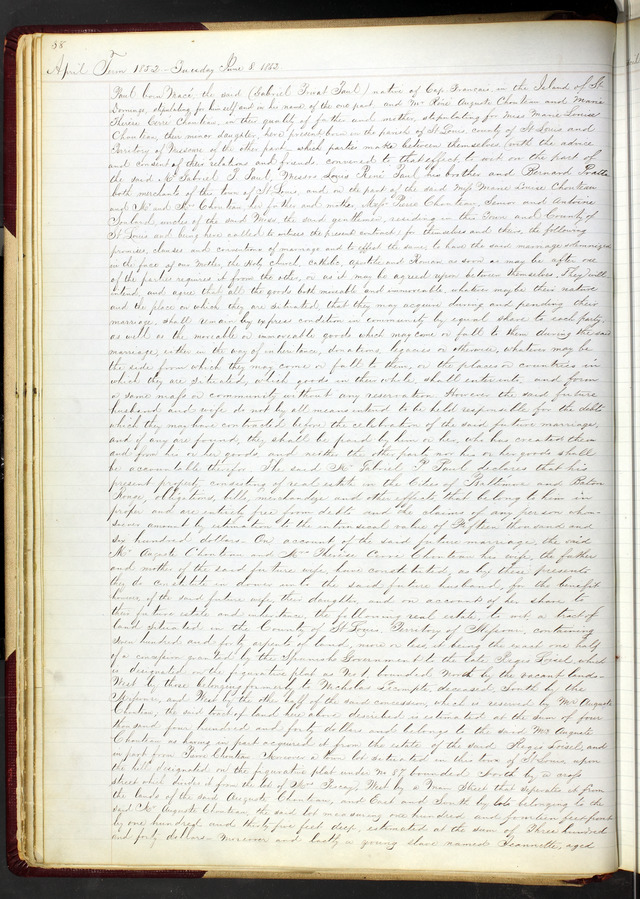 58.
April Term 1852 - Tuesday June 8 1852
Paul born Macé, the said (Gabriel Tivat Paul) native of Cap Francais, in the Island of St
Domingo, stipulating for himself and in his name of the one part, and Mr René Auguste Chouteau and Marie
Therese Cerré Chouteau, in their quality of father and mother, stipulating for Miss Marie Louise
Chouteau, their minor daughter, here present born in the parish of St Louis, county of St Louis and
Territory of Missouri of the other part, which parties make between themselves (with the advice
and consent of their relations and friends, convened to that effect to wit on the part of
the said Mr Gabriel P Paul, Messrs Louis René Paul his brother and Bernard Pratte
both merchants of the town of St Louis, and on the part of the said Miss Marie Louise Chouteau
and Mr and Mrs Chouteau her father and mother, Messrs Pierre Chouteau, Senior and Antoine
Soulard, uncles of the said Miss, the said gentlemen, residing in this Town and County of
St Louis and being here called to witness the present contract) for themselves and theirs the following
promises, clauses and conventions of marriage and to effect the same; to have the said marriage solemnized
in the face of our Mother, the Holy church, catholic, apostolic and Roman as soon as may be after one
of the parties required it from the other, or as it may be agreed upon between themselves. They will
intend, and agree that all the goods both movable and immovable whatever may be their nature
and the place in which they are situated, that they may acquire during and pending their
marriage, shall remain by express condition in community by equal share to each party,
as well as the moveable or immoveable goods which may come or fall to them during the said
marriage, either in the way of inheritance, donations, legacies or otherwise, whatever may be
the side from which they may come or fall to them, or the places or countries in
which they are situated, which goods in their whole shall enter into and form
a same mass or community without any reservation. However the said future
husband and wife do not by all means intend to be held responsible for the debts
which they may have contracted before the celebration of the said future marriage,
and if any are found, they shall be paid by him or her, who has created them
and from his or her goods, and neither the other party nor his or her goods shall
be accountable therefor. The said Mr Gabriel P Paul declares that his
present property consisting of real estate in the Cities of Baltimore and Baton
Rouge, obligations, bills, merchandize and other effects that belong to him in
proper and are entirely free from debts and the claims of any person whom-
soever amount by estimation to the intrinsical value of Fifteen thousand and
six hundred dollars. On account of the said future marriage, the said
Mr Auguste Chouteau and Mrs Therese Cerré Chouteau his wife, the father
and mother of the said future wife, have constituted, as by these presents
they do constitute in dower unto the said future husband, for the benefit
hence of the said future wife their daughter and on account of her share to
their future estate and inheritance, the following real estate, to wit, a tract of
land situated in the County of St Louis, Territory of Missouri, containing
seven hundred and forty arpents of land, more or less, it being the exact one half
of a concession granted by the Spanish Government to the late Regis Loisel, which
is designated on the figurative plat as No 1 bounded North by the vacant lands-
West by those belonging formerly to Nicholas Lecompte, deceased, South by the
Missouri, and West by the other half of the same concession, which is reserved by Mr Auguste
Chouteau, the said tract of land here above described is estimated at the sum of four
thousand four hundred and forty dollars and belongs to the said Mr Auguste
Chouteau as being in part acquired is from the estate of the said Regis Loisel, and
in part from Pierre Chouteau. Moreover a town lot situated in this town of St Louis upon
the hill designated on the figurative plat under No 87 bounded North by a cross
street which divides it from the lot of Mr Piercy, West by a Main Street that separates it from
the lands of the said Auguste Chouteau, and East and South by lots belonging to the
said Mr Auguste Chouteau, the said lot measuring one hundred and fourteen feet front
by one hundred and thirty five feet deep, estimated at the sum of Three hundred
and forty dollars. Moreover and lastly a young slave named Jeannette, aged